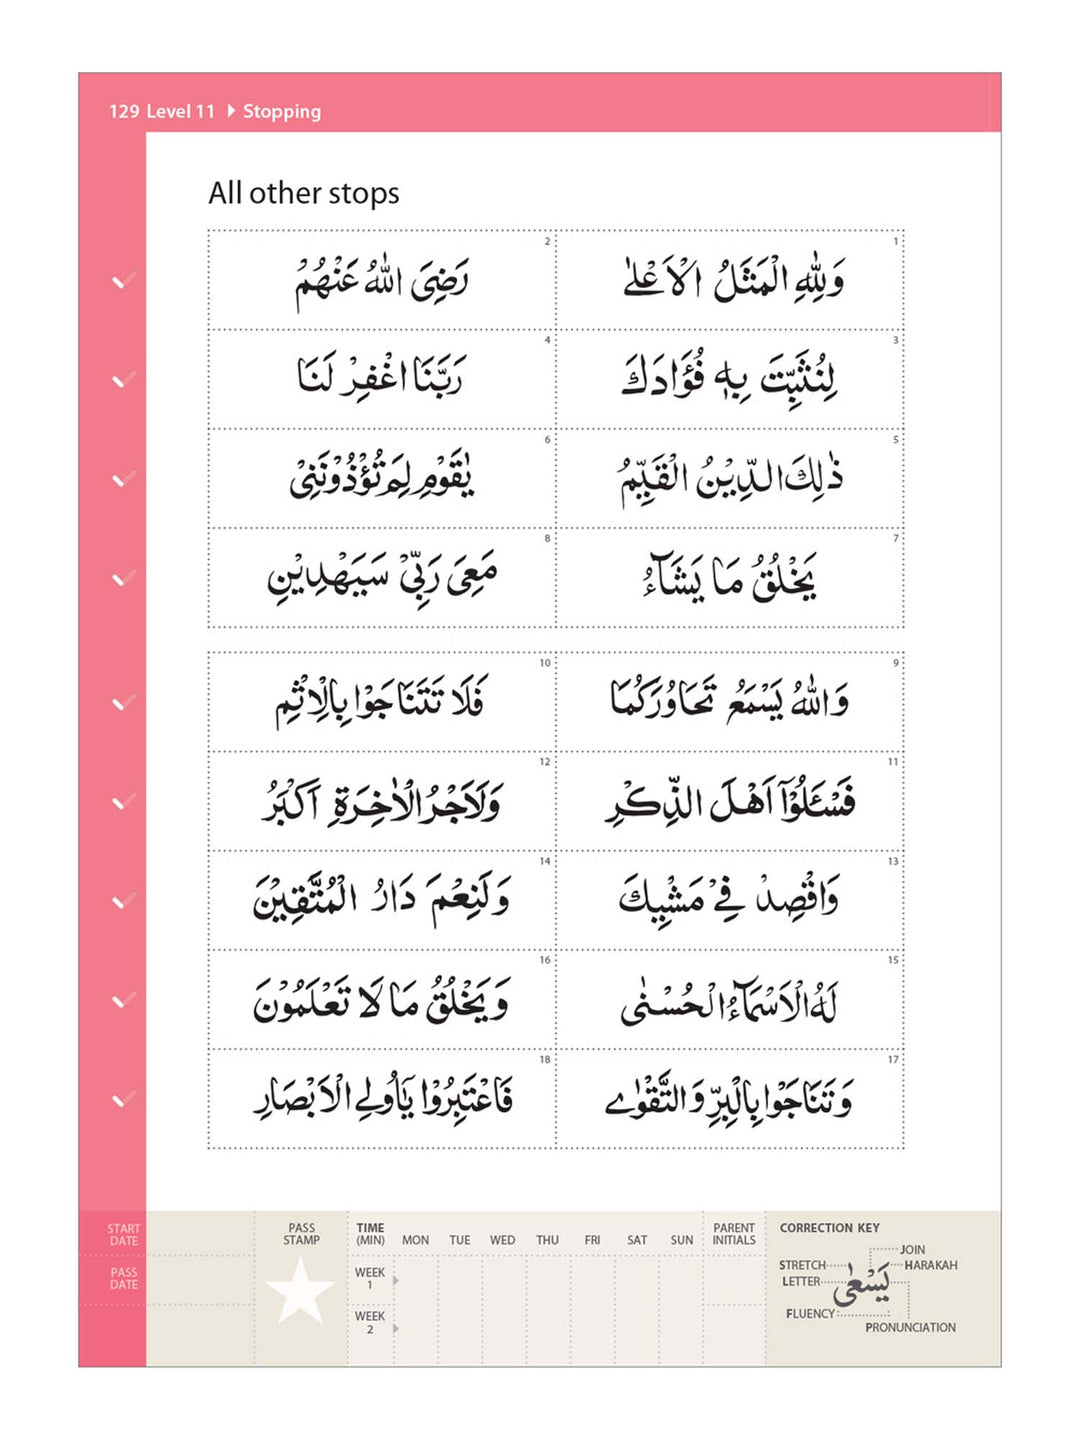 129 Level 11 Stopping
All other stops
1
وَلِلّٰهِ الْمَثَلُ الْاَعْلٰى
2
رَضِيَ اللّٰهُ عَنْهُمْ
3
لِنُثَبِّتَ بِهٖ فُؤَادَكَ
4
رَبَّنَا اغْفِرْ لَنَا
5
ذٰلِكَ الدِّيْنُ الْقَيِّمُ
6
يٰقَوْمِ لِمَ تُؤْذُوْنَنِيْ
7
يَخْلُقُ مَا يَشَآءُ
8
مَعِيَ رَبِّيْ سَيَهْدِيْنِ
9
وَاللّٰهُ يَسْمَعُ تَحَاوُرَكُمَا
10
فَلَا تَتَنَاجَوْا بِالْاِثْمِ
11
فَسْـَٔلُوْٓا اَهْلَ الذِّكْرِ
12
وَلَاَجْرُ الْاٰخِرَةِ اَكْبَرُ
13
وَاقْصِدْ فِيْ مَشْيِكَ
14
وَلَنِعْمَ دَارُ الْمُتَّقِيْنَ
15
لَهُ الْاَسْمَآءُ الْحُسْنٰى
16
وَيَخْلُقُ مَا لَا تَعْلَمُوْنَ
17
وَتَنَاجَوْا بِالْبِرِّ وَالتَّقْوٰى
18
فَاعْتَبِرُوْا يٰٓاُولِى الْاَبْصَارِ
START DATE
PASS DATE
PASS STAMP
TIME (MIN) MON TUE WED THU FRI SAT SUN
WEEK 1
WEEK 2
PARENT INITIALS
CORRECTION KEY
JOIN
STRETCH HARAKAH
LETTER
يَسْعٰى
FLUENCY
PRONUNCIATION